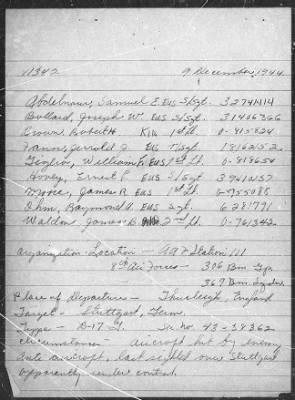 11342 9 December, 1944
Abdelnour, Samuel E. EUS S/Sgt. 32741414
Bullard, Joseph W. EUS S/Sgt. 31406366
Crown, Robert H KIA 1st Lt. 0-415824
Gerrold J. EUS T/Sgt. 18162552
William F. EUS 1st Lt. 0-418654
Hovey, Ernest P EUS S/Sgt. 39410157
James R EUS 1st Lt.
Ohm, Raymond A. EUS Sgt. 6281791
Waldon, James B. 2nd Lt. 0-761342
Organization Location - AAF Station 111
8th Air Force - 306 Bm. Gp.
367 Bm. Sqdn
Place of Departure - Thurleigh, England
Target - Stuttgart, Germ.
Type - B-17 G. Se. no. 43-38362
Circumstances - aircraft hit by enemy
anti aircraft, last sighted over Stuttgart
apparently under control